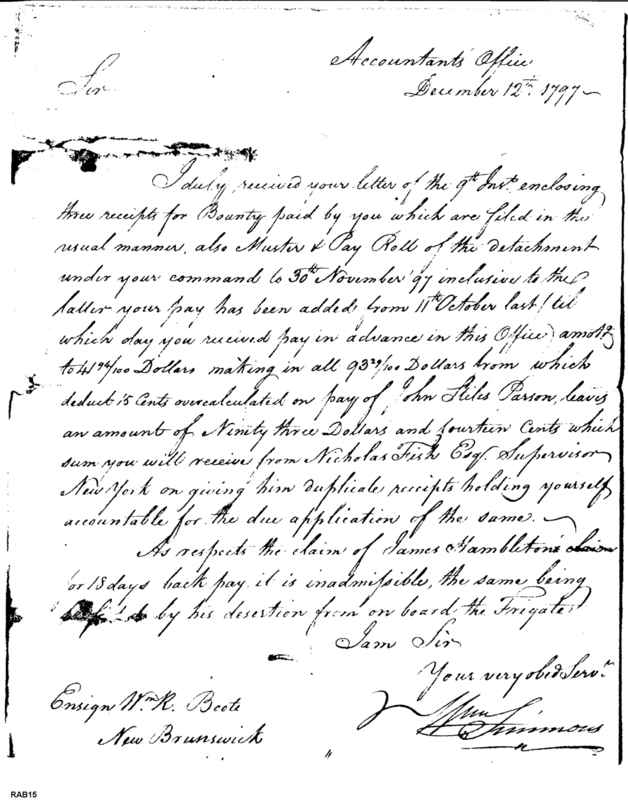 Accountants' Office
Sir
December 12th. 1797 ~
I duly received your letter of the 9th Inst. enclosing
three receipts for Bounty paid by you which are filed in the
usual manner, also Muster & Pay Roll of the detachment
under your command to 30th November '97 inclusive to the
latter your pay has been added from 11th October last (til
which day you received pay in advance in this Office) amotg
to 41 94/100 Dollars making in all 93 29/100 Dollars from which
deduct 15 Cents overcalculated on pay of John Stiles Parson, leaves
an amount of Ninity three Dollars and fourteen Cents which
sum you will receive from Nicholas Fish Esqr. Supervisor
New York on giving him duplicate receipts holding yourself
accountable for the due application of the same. ~
As respects the claim of James Hambleton's
for 18 days back pay it is inadmissible, the same being
by his desertion from on board the Frigate
I am Sir
Your very obed Servt.
Ensign Wm. R. Boote
Wm Simmons
New Brunswick
RAB15